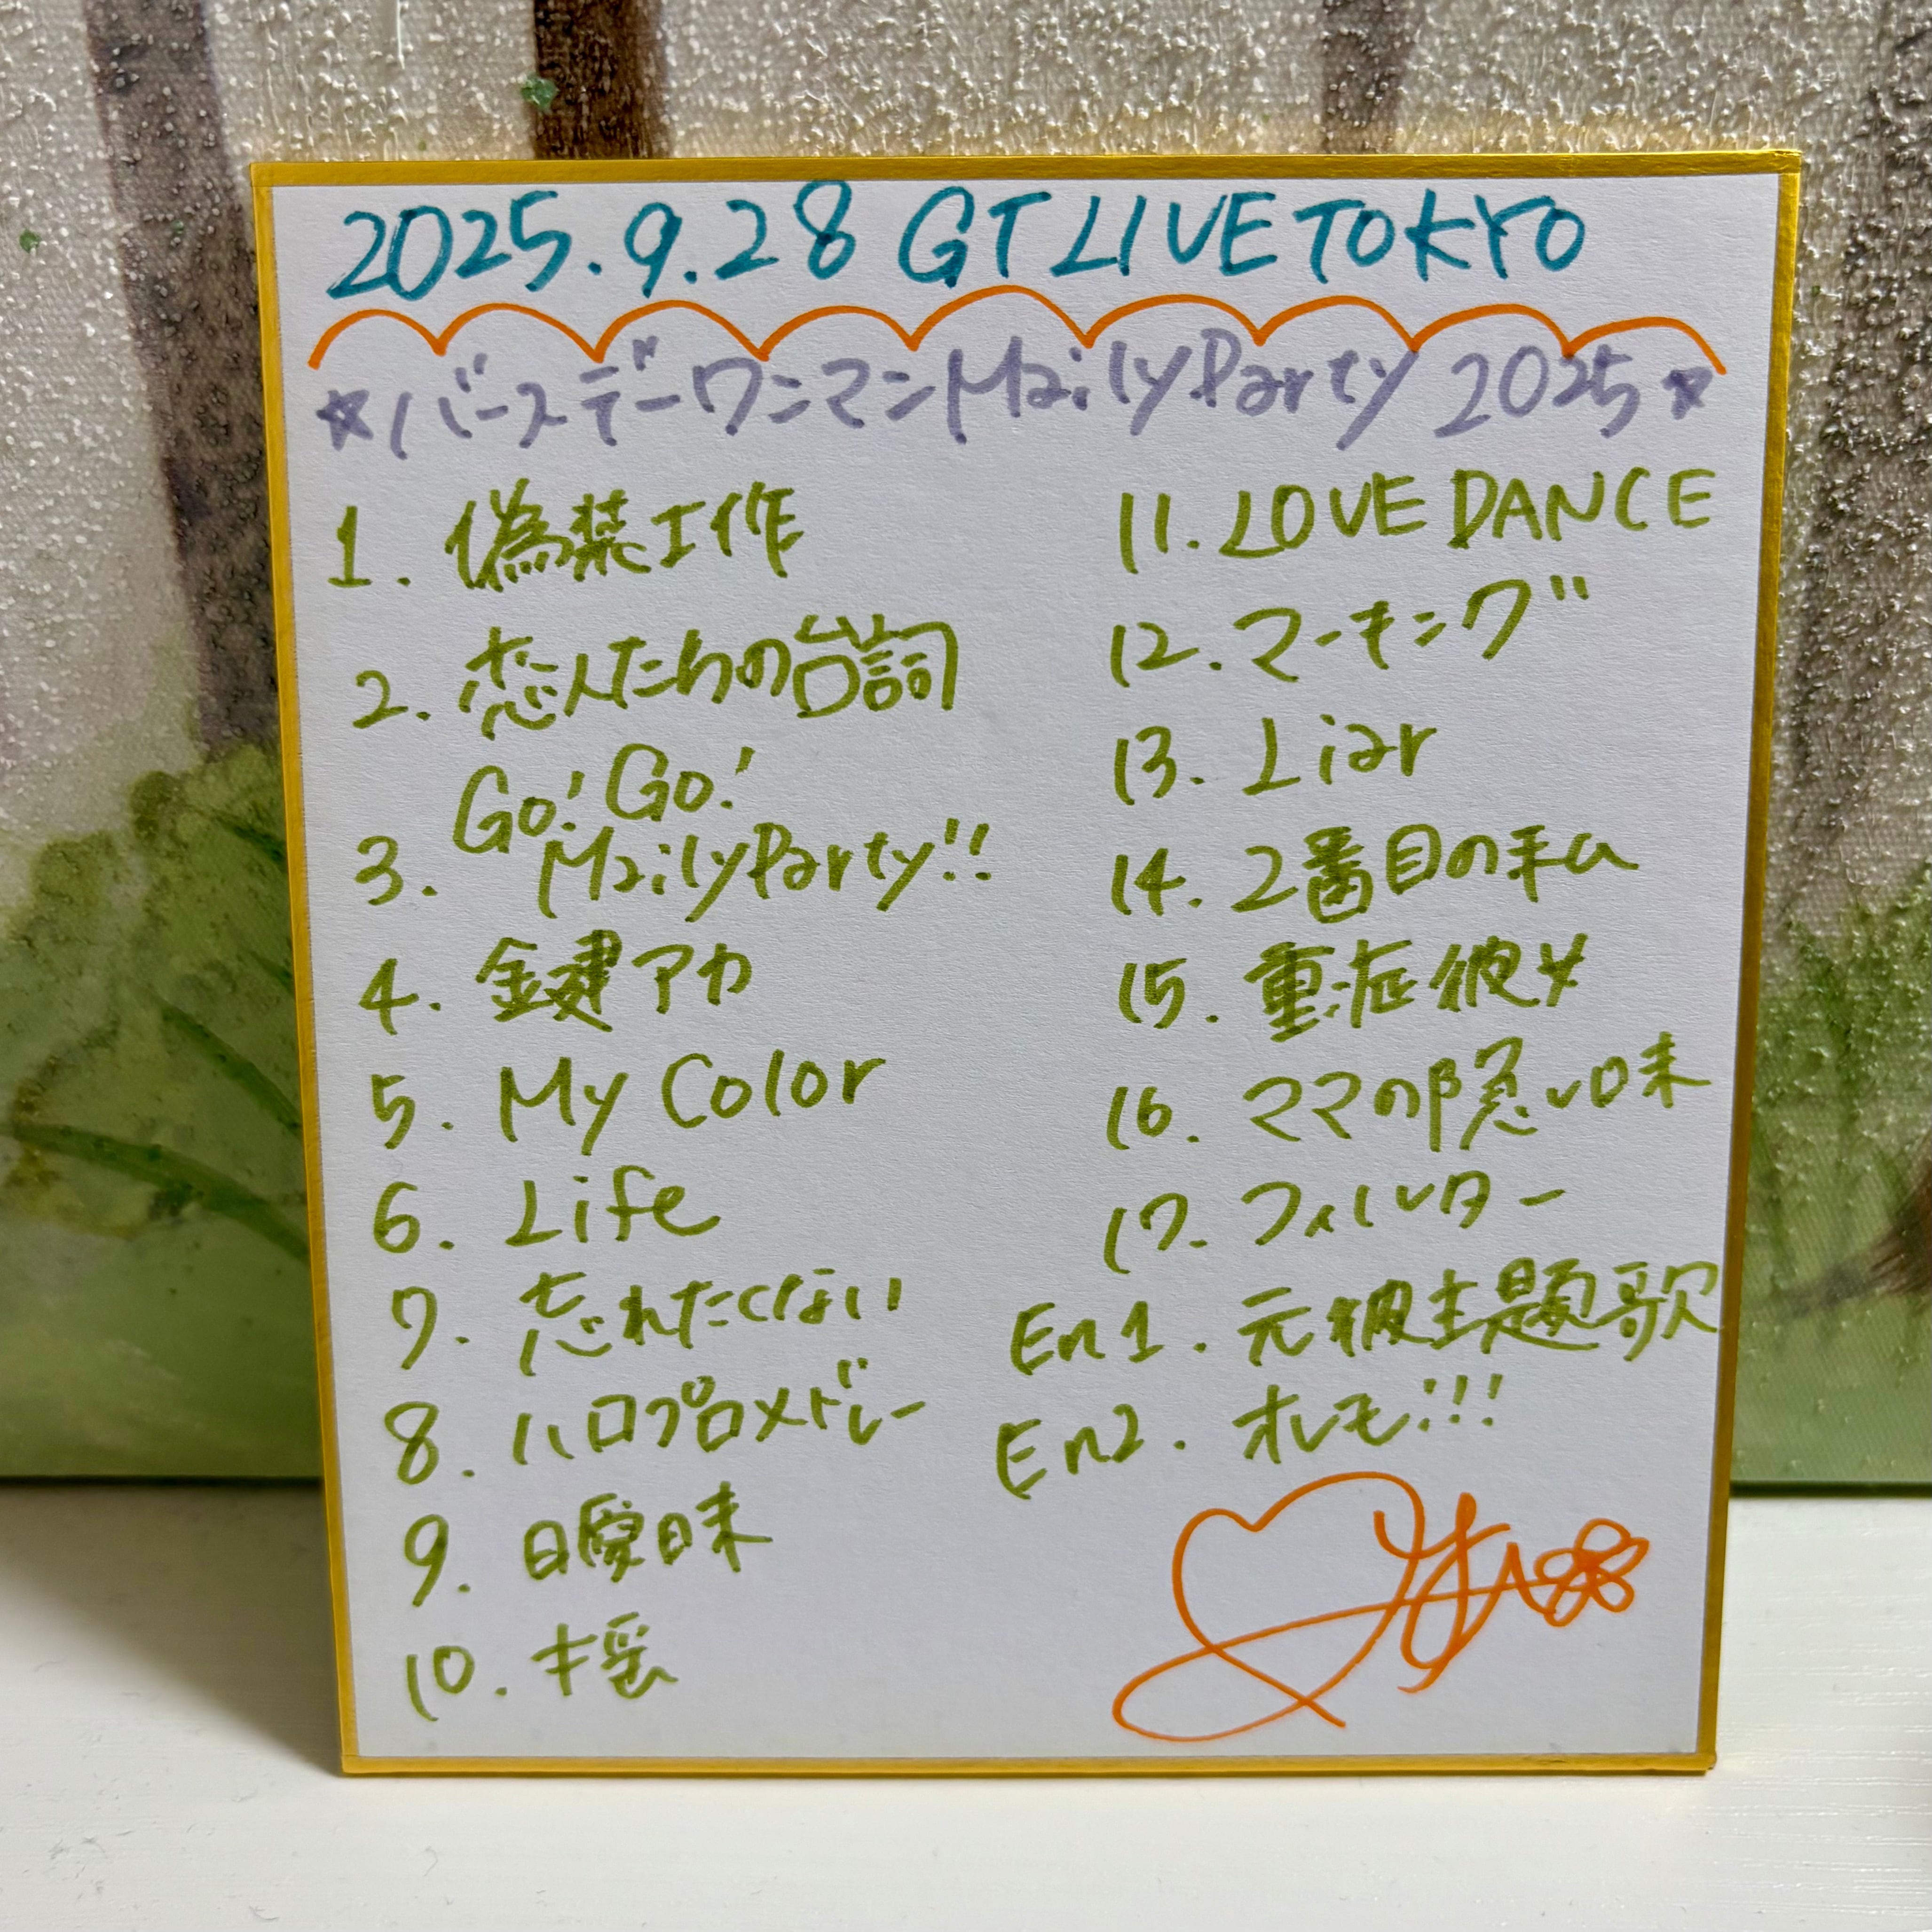 2025.9.28 GT LIVE TOKYO
☆バースデーワンマンMailyParty 2025☆
1. 偽装工作
2. 恋人たちの台詞
3. Go! Go! MailyParty!!
4. 鍵アカ
5. My Color
6. Life
7. 忘れたくない
8. ハロプロメドレー
9. 曖昧
10. 揺
11. LOVE DANCE
12. マーキング
13. Liar
14. 2番目の私
15. 重症彼女
16. ママの隠し味
17. フィルター
En1. 元彼主題歌
En2. オレモ!!!